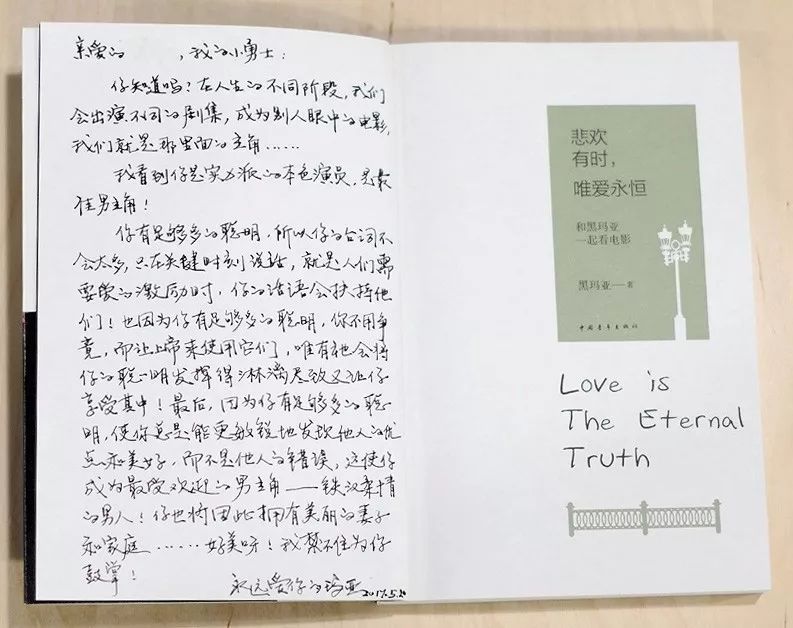 亲爱的 ，我的小勇士：
你知道吗？在人生的不同阶段，我们
会出演不同的剧集，成为别人眼中的电影，
我们就是那里面的主角……
我看到你是实力派的本色演员，是最
佳男主角！
你有足够多的聪明，所以你的台词不
会太多，只在关键时刻说话，就是人们需
要爱的激励时，你的话语会扶持他
们！也因为你有足够多的聪明，你不用争
竞，而让上帝来使用它们，唯有祂会将
你的聪明发挥得淋漓尽致又让你
享受其中！最后，因为你有足够多的聪
明，使你总是能更敏锐地发现他人的优
点和美好，而不是他人的错误，这使你
成为最受欢迎的男主角——铁汉柔情
的男人！你也将因此拥有美丽的妻子
和家庭……好美呀！我禁不住为你
鼓掌！
永远爱你的玛亚 2017.5.20
悲欢
有时，
唯爱永恒
和黑玛亚
一起看电影
黑玛亚——著
中国青年出版社
Love is
The Eternal
Truth